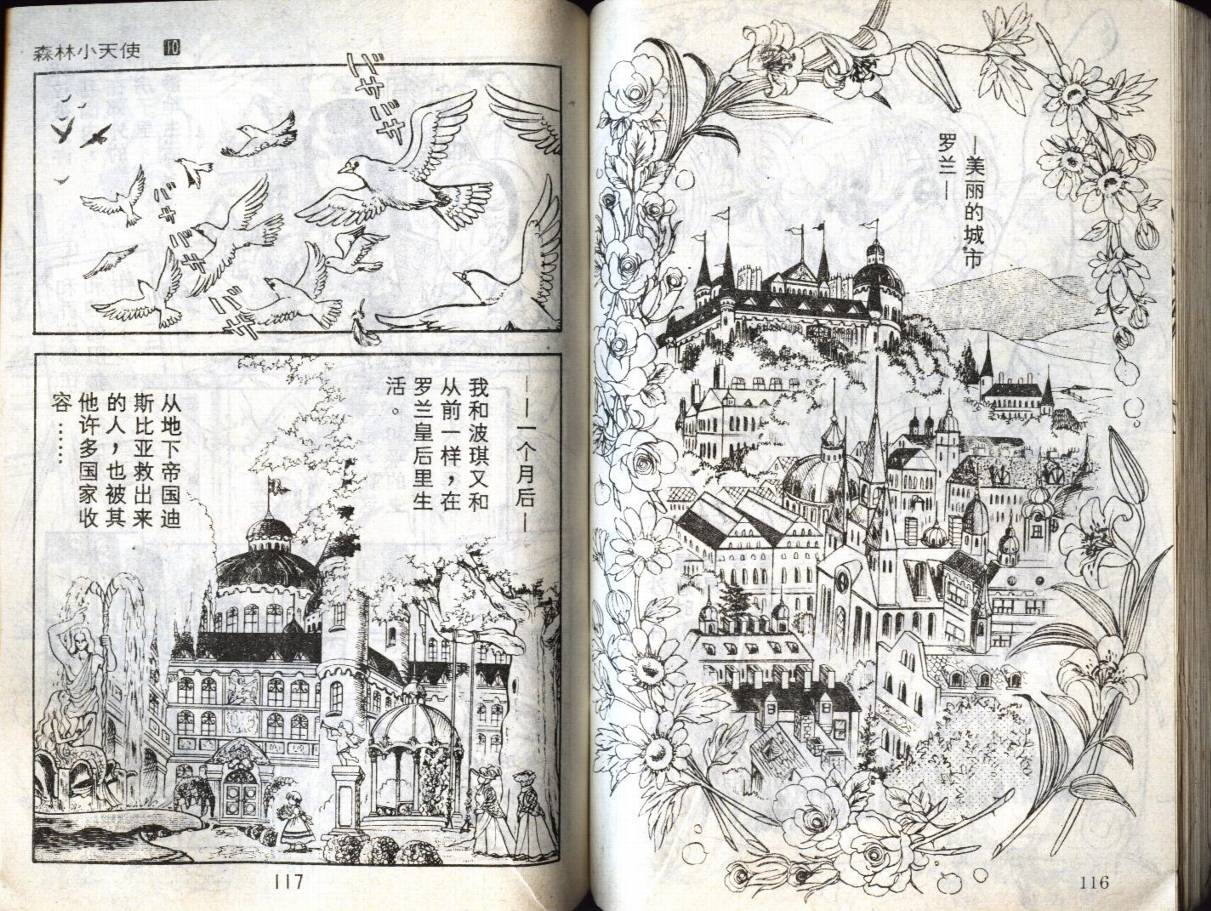 —美丽的城市
罗兰—
116
森林小天使 10
バサバサ
バサ
バサ
バサ
——一个月后—
我和波琪又和
从前一样，在
罗兰皇后里生
活。
从地下帝国迪
斯比亚救出来
的人，也被其
他许多国家收
容……
117